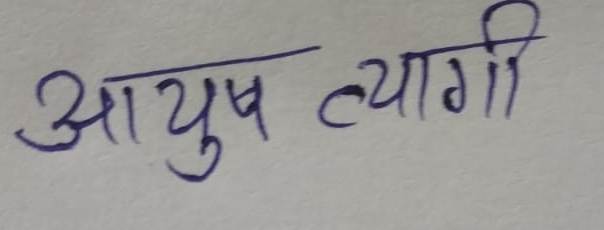 आयुष त्यागी